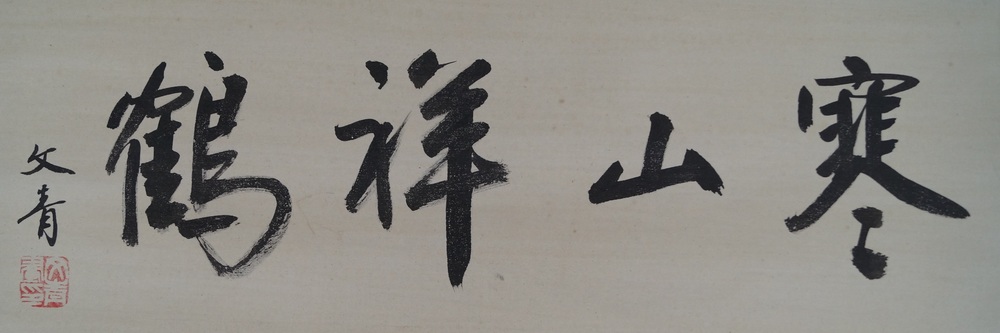 寒山祥鶴
文青